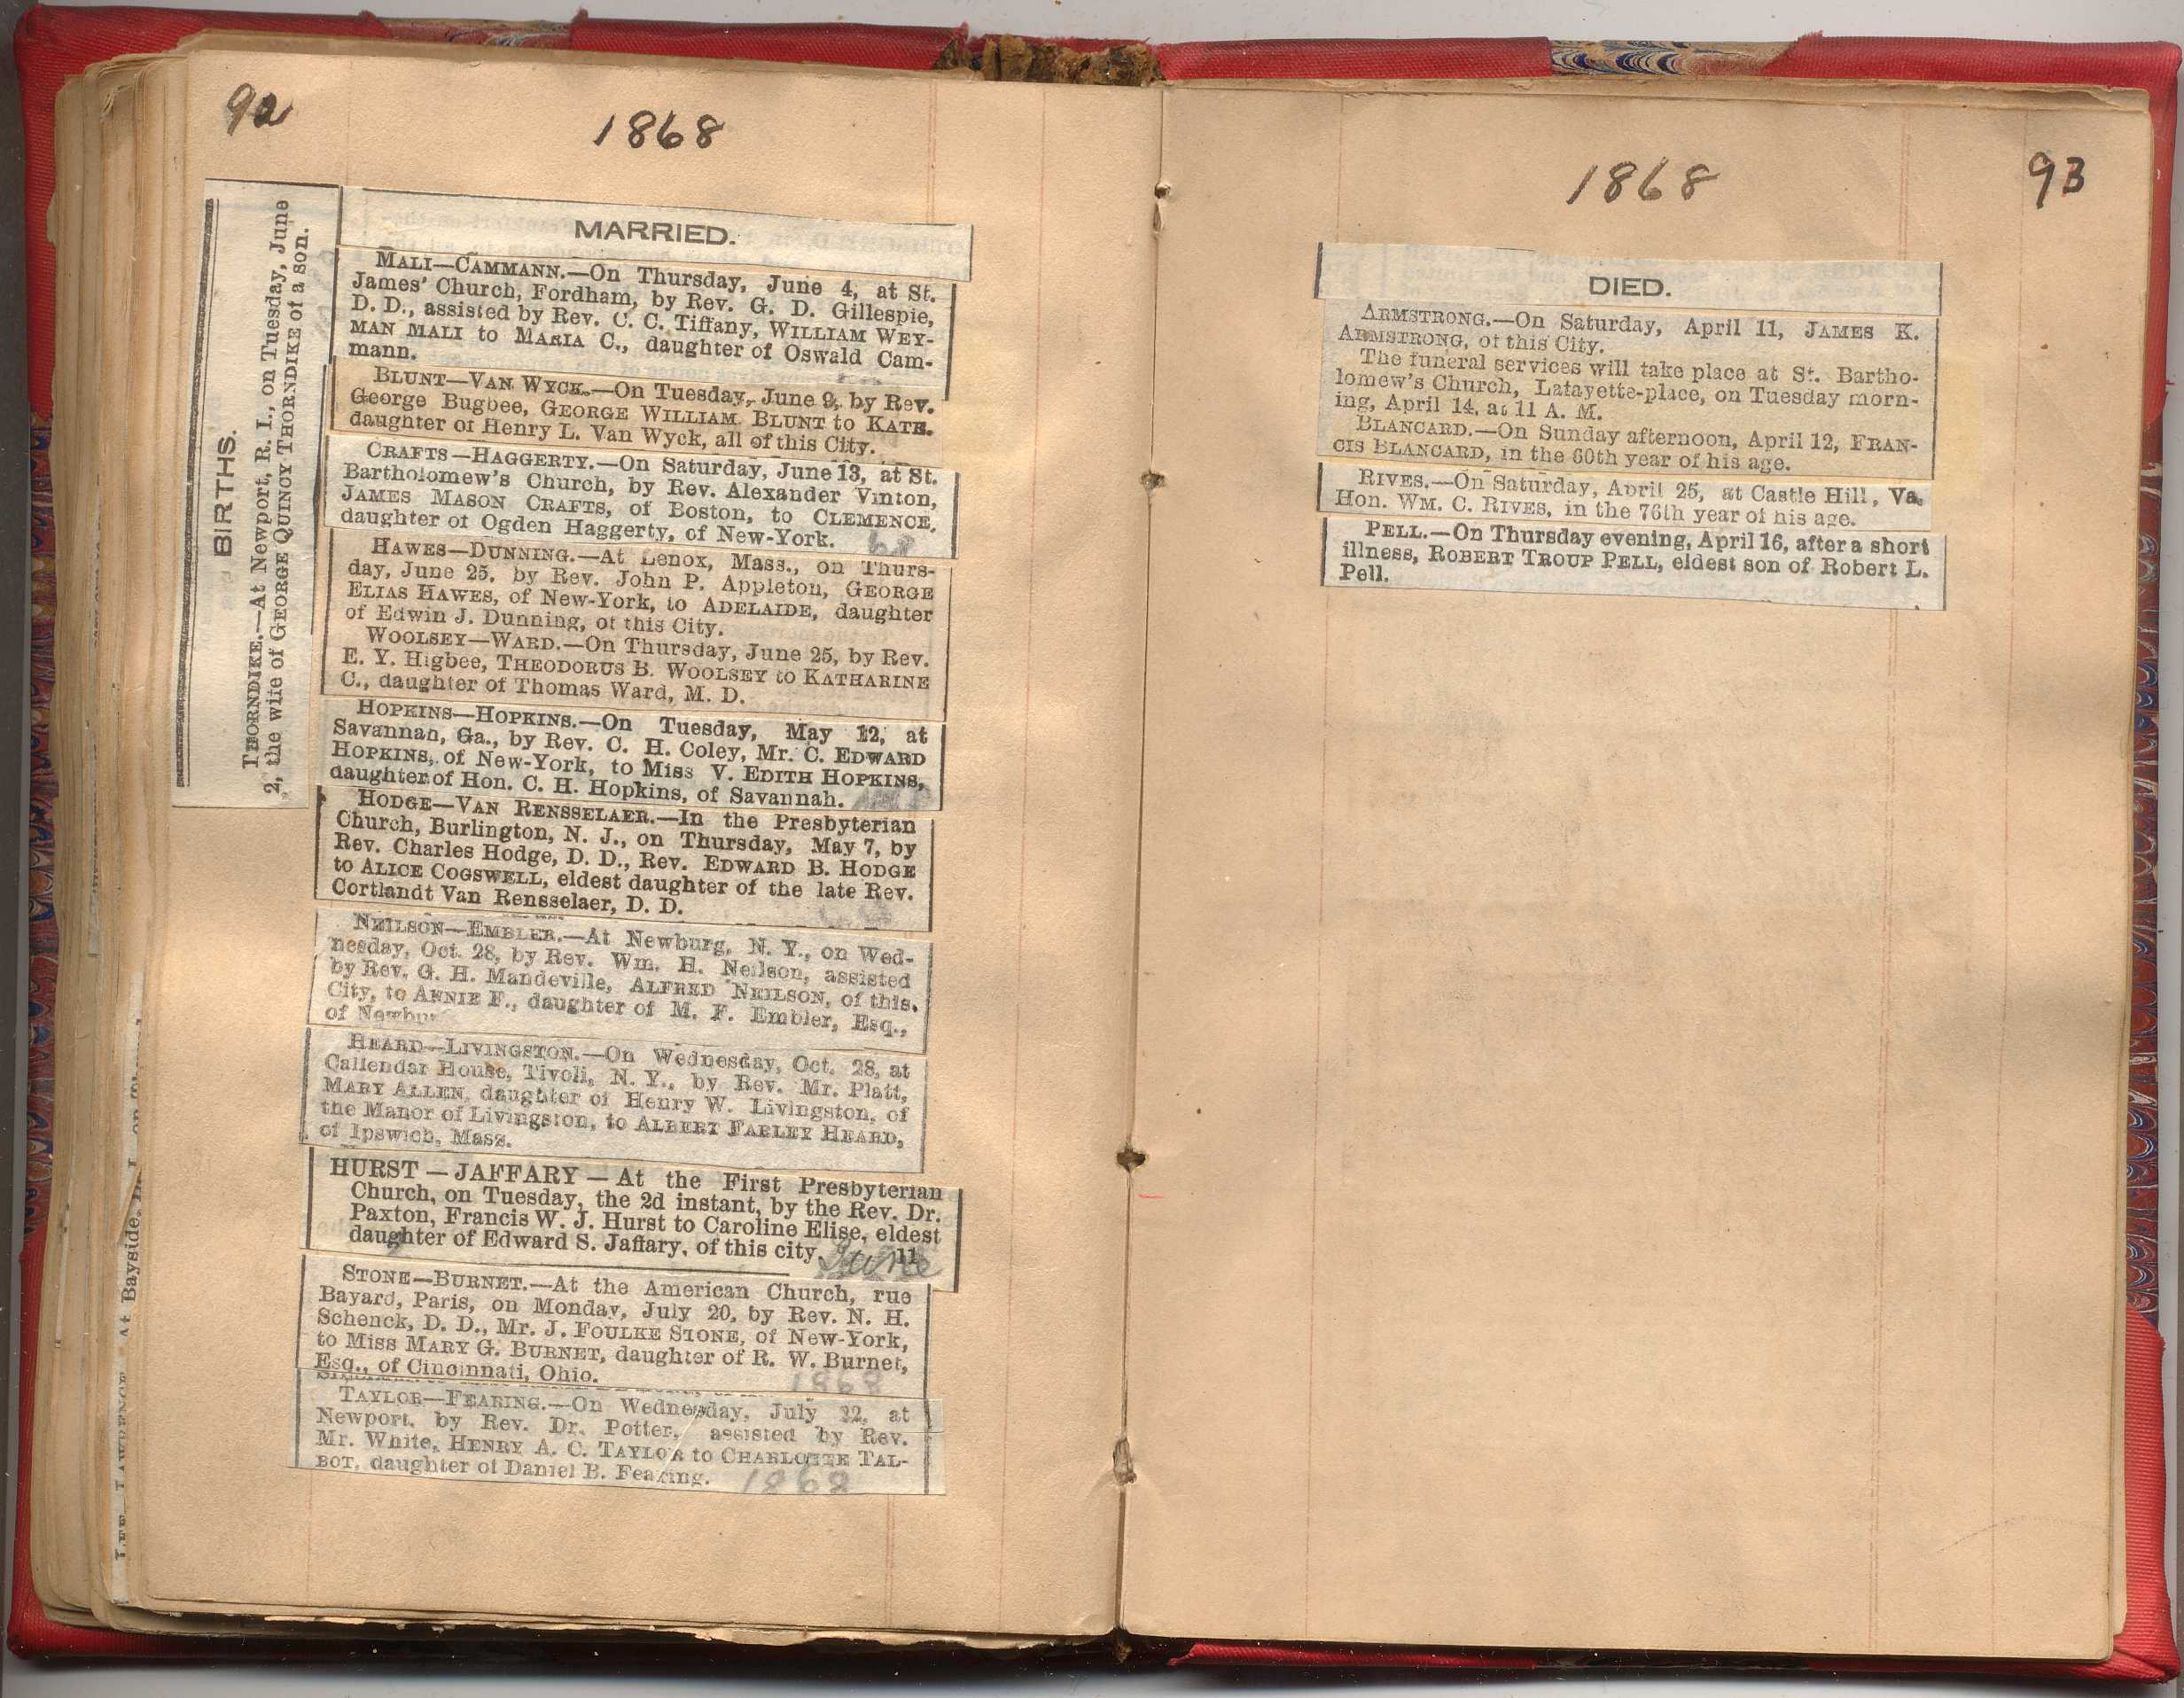 92
1868
BIRTHS.
THORNDIKE.—At Newport, R. I., on Tuesday, June
2, the wife of GEORGE QUINCY THORNDIKE of a son.
MARRIED.
MALI—CAMMANN.—On Thursday, June 4, at St.
James' Church, Fordham, by Rev. G. D. Gillespie,
D. D., assisted by Rev. C. C. Tiffany, WILLIAM WEY-
MAN MALI to MARIA C., daughter of Oswald Cam-
mann.
BLUNT—VAN WYCK.—On Tuesday, June 9, by Rev.
George Bugbee, GEORGE WILLIAM BLUNT to KATE.
daughter of Henry L. Van Wyck, all of this City.
CRAFTS—HAGGERTY.—On Saturday, June 13, at St.
Bartholomew's Church, by Rev. Alexander Vinton,
JAMES MASON CRAFTS, of Boston, to CLEMENCE,
daughter of Ogden Haggerty, of New-York.
68
HAWES—DUNNING.—At Lenox, Mass., on Thurs-
day, June 25, by Rev. John P. Appleton, GEORGE
ELIAS HAWES, of New-York, to ADELAIDE, daughter
of Edwin J. Dunning, of this City.
WOOLSEY—WARD.—On Thursday, June 25, by Rev.
E. Y. Higbee, THEODORUS B. WOOLSEY to KATHARINE
C., daughter of Thomas Ward, M. D.
HOPKINS—HOPKINS.—On Tuesday, May 12, at
Savannah, Ga., by Rev. C. H. Coley, Mr. C. EDWARD
HOPKINS, of New-York, to Miss V. EDITH HOPKINS,
daughter of Hon. C. H. Hopkins, of Savannah.
HODGE—VAN RENSSELAER.—In the Presbyterian
Church, Burlington, N. J., on Thursday, May 7, by
Rev. Charles Hodge, D. D., Rev. EDWARD B. HODGE
to ALICE COGSWELL, eldest daughter of the late Rev.
Cortlandt Van Rensselaer, D. D.
NEILSON—EMBLER.—At Newburg, N. Y., on Wed-
nesday, Oct. 28, by Rev. Wm. H. Neilson, assisted
by Rev. G. H. Mandeville, ALFRED NEILSON, of this
City, to ANNIE F., daughter of M. F. Embler, Esq.,
of Newbur
HEARD—LIVINGSTON.—On Wednesday, Oct. 28, at
Callendar House, Tivoli, N. Y., by Rev. Mr. Platt,
MARY ALLEN, daughter of Henry W. Livingston, of
the Manor of Livingston, to ALBERT FARLEY HEARD,
of Ipswich, Mass.
HURST — JAFFARY — At the First Presbyterian
Church, on Tuesday, the 2d instant, by the Rev. Dr.
Paxton, Francis W. J. Hurst to Caroline Elise, eldest
daughter of Edward S. Jaffary, of this city. 11
June
STONE—BURNET.—At the American Church, rue
Bayard, Paris, on Monday, July 20, by Rev. N. H.
Schenck, D. D., Mr. J. FOULKE STONE, of New-York,
to Miss MARY G. BURNET, daughter of R. W. Burnet,
Esq., of Cincinnati, Ohio.
1868
TAYLOR—FEARING.—On Wednesday, July 22, at
Newport, by Rev. Dr. Potter, assisted by Rev.
Mr. White, HENRY A. C. TAYLOR to CHARLOTTE TAL-
BOT, daughter of Daniel B. Fearing.
1868
1868
93
DIED.
ARMSTRONG.—On Saturday, April 11, JAMES K.
ARMSTRONG, of this City.
The funeral services will take place at St. Bartho-
lomew's Church, Lafayette-place, on Tuesday morn-
ing, April 14, at 11 A. M.
BLANCARD.—On Sunday afternoon, April 12, FRAN-
CIS BLANCARD, in the 60th year of his age.
RIVES.—On Saturday, April 25, at Castle Hill, Va.
Hon. WM. C. RIVES, in the 76th year of his age.
PELL.—On Thursday evening, April 16, after a short
illness, ROBERT TROUP PELL, eldest son of Robert L.
Pell.